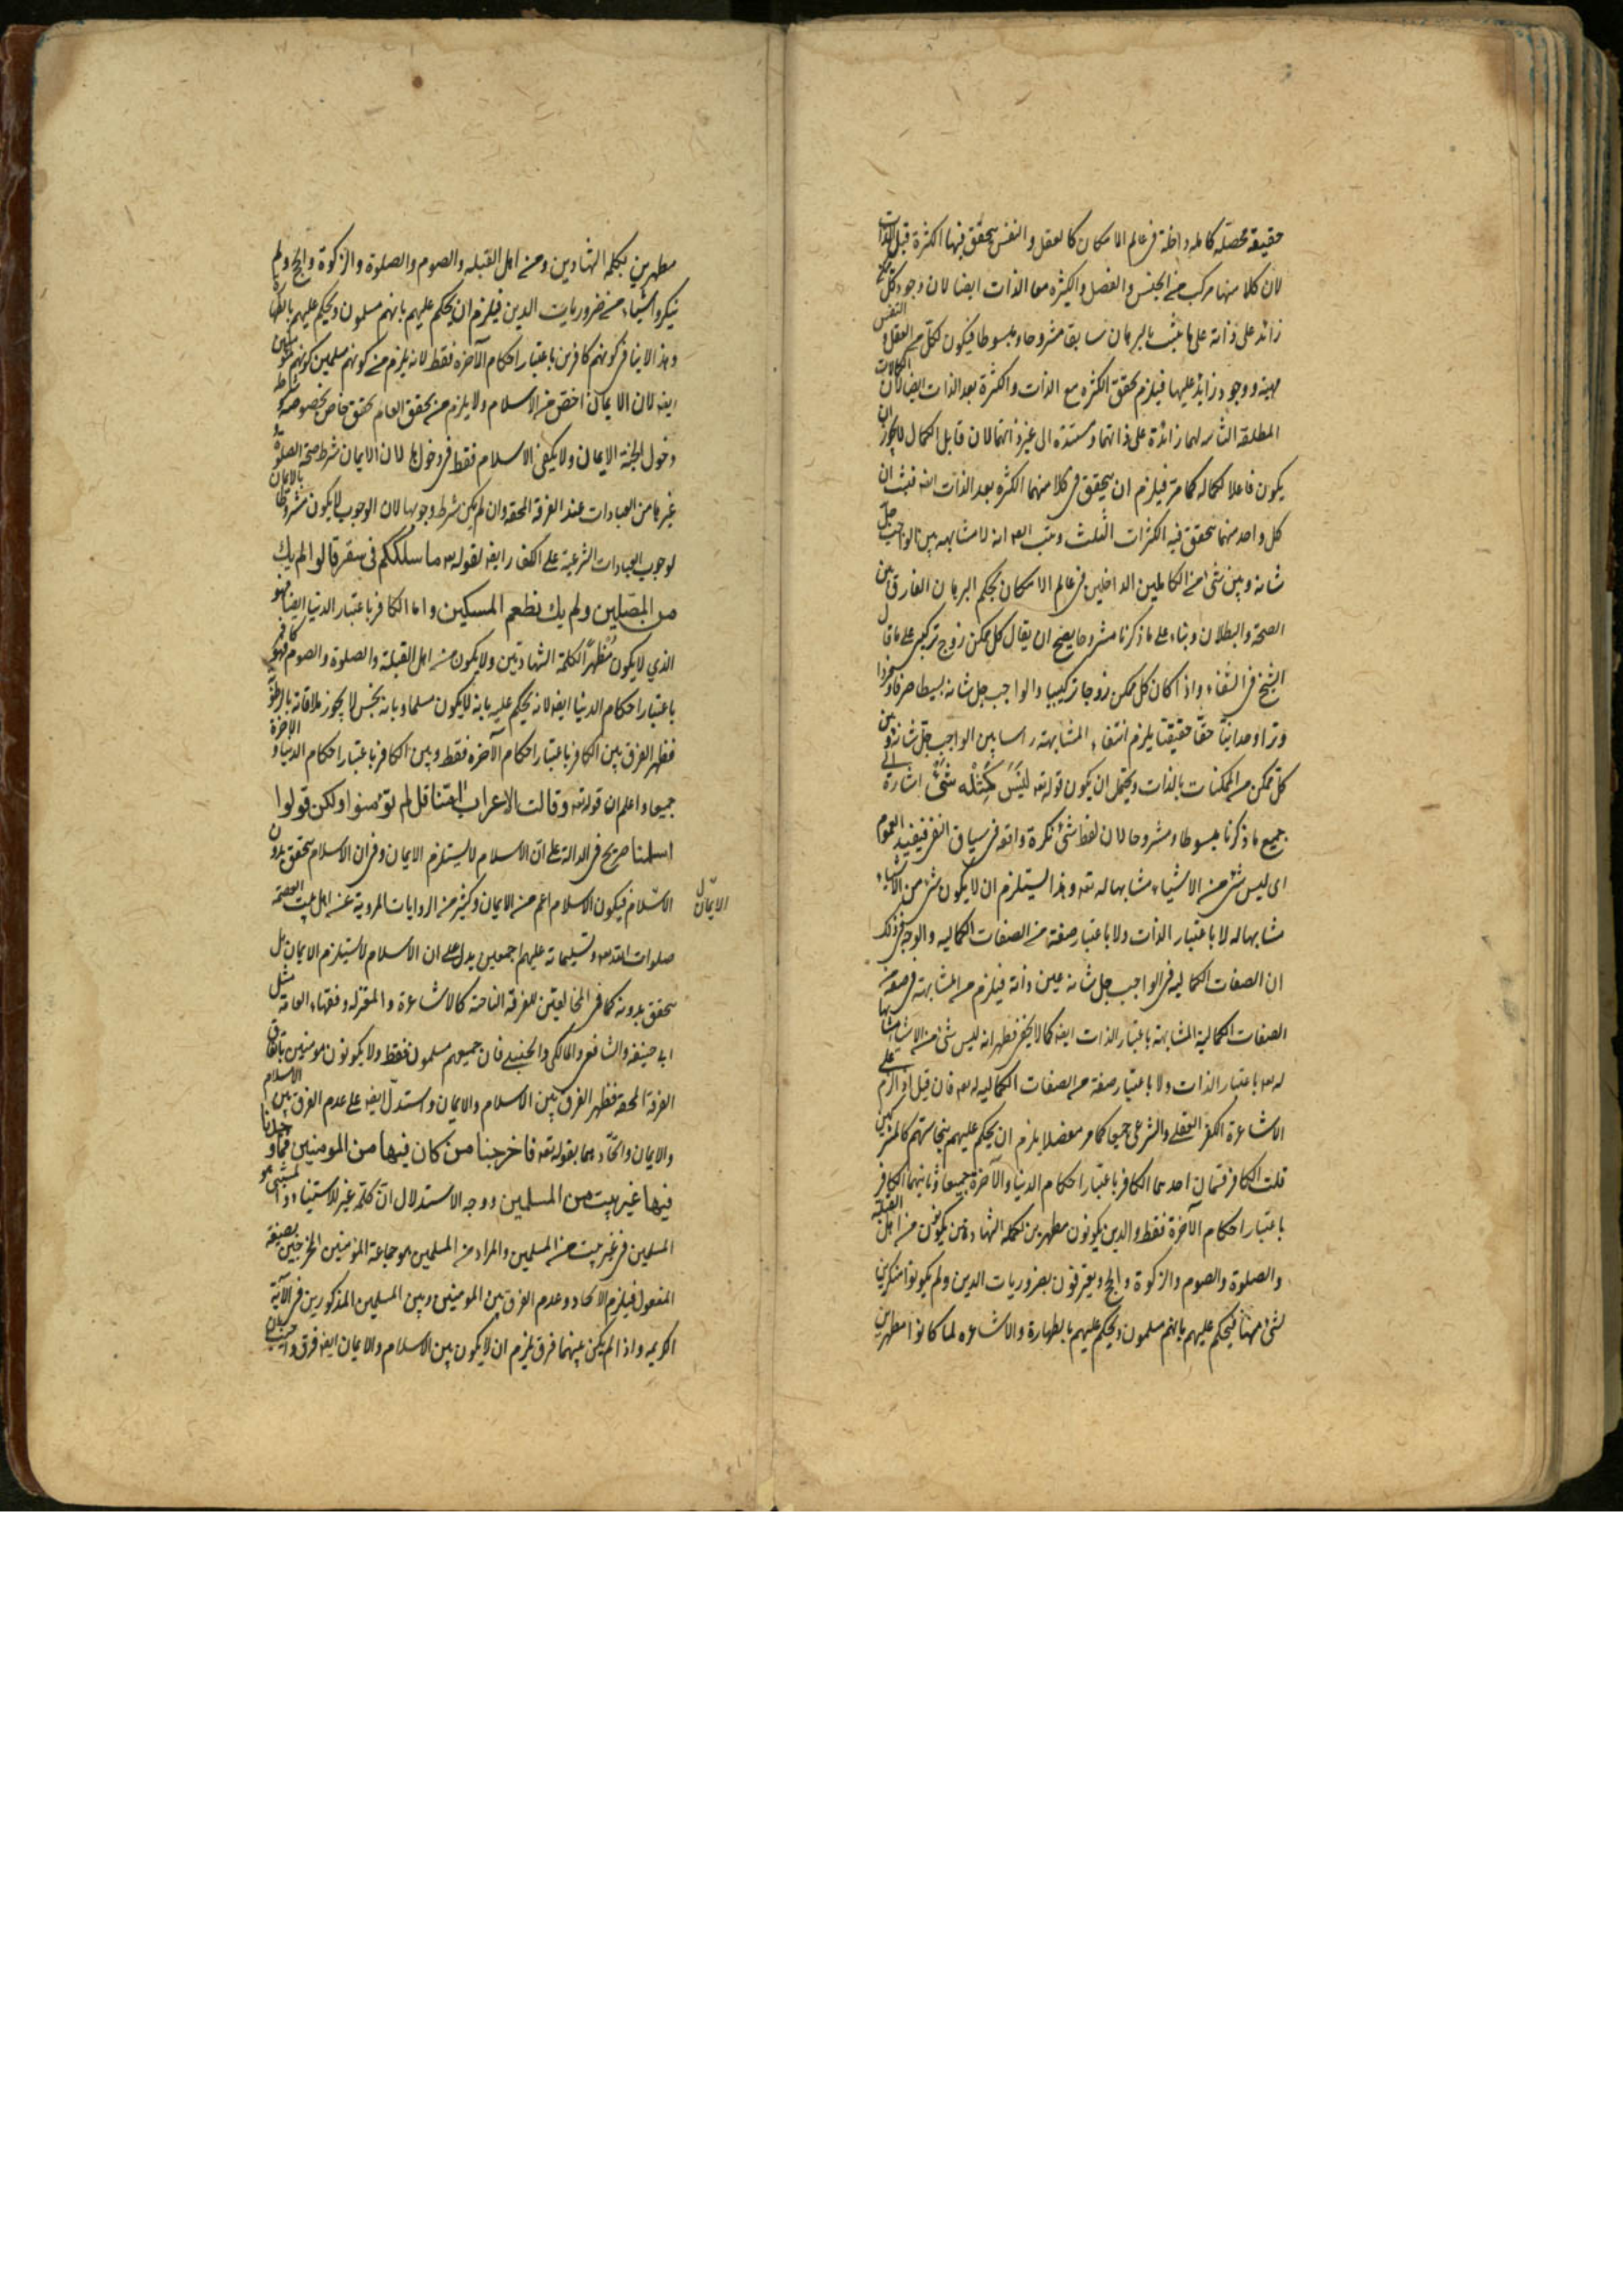 حقيقة محصلة كاملة داخلة في عالم الامكان كالعقل والنفس يتحقق فيها الكثرة قبل الذات
لان كلا منها مركب من الجنس والفصل والكثرة مع الذات ايضا لان وجود كل
زائد على ذاته على ما يثبت بالبرهان سابقا مشروحا ومبسوطا فيكون لكل من العقل والنفس
مهية ووجود زايد عليها فيلزم تحقق الكثرة مع الذات والكثرة بعد الذات ايضا لان الكمالات
المطلقة الثابتة لهما زائدة على ذاتهما ومستندة الى غير ذاتهما لان قابل الكمال لا يجوز ان
يكون فاعلا لكماله كما مر فيلزم ان يتحقق في كلا منهما الكثرة بعد الذات ايضا فثبت ان
كل واحد منهما يتحقق فيه الكثرات الثلث وثبت ايضا انه لا مشابهة بين الواجب جل
شانه وبين شئ من الكاملين الداخلين في عالم الامكان بحكم البرهان الفارق بين
الصحة والبطلان وبناء على ما ذكرنا مشروحا يصح ان يقال كل ممكن زوج تركيبي على ما قال
الشيخ في الشفاء واذا كان كل ممكن زوجا تركيبيا والواجب جل شانه بسيطا صرفا وفردا
وترا وحدانيا حقا حقيقيا يلزم انتفاء المشابهة راسا بين الواجب جل شانه وبين
كل ممكن من الممكنات بالذات ويحتمل ان يكون قوله تع ليس كمثله شئ اشارة الى
جميع ما ذكرنا مبسوطا ومشروحا لان لفظ شئ نكرة واقعة في سياق النفي فيفيد العموم
اى ليس شئ من الاشياء مشابها له تع وهذا يستلزم ان لا يكون شئ من الاشياء
مشابها له لا باعتبار الذات ولا باعتبار صفة من الصفات الكمالية والوجه في ذلك
ان الصفات الكمالية في الواجب جل شانه عين ذاته فيلزم من المشابهة في صفة من
الصفات الكمالية المشابهة باعتبار الذات ايضا كما لا يخفى فظهر انه ليس شئ من الاشياء مشابها
له تع باعتبار الذات ولا باعتبار صفة من الصفات الكمالية له تع فان قيل اذا لزم على
الاشاعرة الكفر العقلي والشرعي جميعا كما مر مفصلا يلزم ان يحكم عليهم بنجاستهم كالمشركين
قلت الكافر قسمان احدهما الكافر باعتبار احكام الدنيا والآخرة جميعا وثانيهما الكافر
باعتبار احكام الآخرة فقط والذين يكونون مظهرين لكلمة الشهادتين يكونون من اهل القبلة
والصلوة والصوم والزكوة والحج ويعترفون بضروريات الدين ولم يكونوا منكرين
لشئ منها فيحكم عليهم بانهم مسلمون ويحكم عليهم بالطهارة والاشاعرة لما كانوا مظهرين
مظهرين لكلمة الشهادتين ومن اهل القبلة والصوم والصلوة والزكوة والحج ولم
ينكروا شيئا من ضروريات الدين فيلزم ان يحكم عليهم بانهم مسلمون ويحكم عليهم بالطهارة
وهذا لا ينافي كونهم كافرين باعتبار احكام الآخرة فقط لانه لا يلزم من كونهم مسلمين كونهم مؤمنين
ايضا لان الايمان اخص من الاسلام ولا يلزم من تحقق العام تحقق خاص بخصوصه وشرط
دخول الجنة الايمان ولا يكفي الاسلام فقط في دخولها لان الايمان شرط صحة الصلوة و
غيرها من العبادات عند الفرقة المحقة وان لم يكن شرط وجوبها لان الوجوب لا يكون مشروطا بالايمان
لوجوب العبادات الشرعية على الكفار ايضا لقوله تع ما سلككم في سقر قالوا لم نك
من المصلين ولم نك نطعم المسكين واما الكافر باعتبار الدنيا ايضا فهو
الذي لا يكون مظهرا لكلمة الشهادتين ولا يكون من اهل القبلة والصلوة والصوم فهو كافر
باعتبار احكام الدنيا ايضا لانه يحكم عليه بانه لا يكون مسلما وبانه نجس لا يجوز ملاقاته بالرطوبة
فظهر الفرق بين الكافر باعتبار احكام الآخرة فقط وبين الكافر باعتبار احكام الدنيا والاخرة
جميعا واعلم ان قوله تع وقالت الاعراب امنا قل لم تؤمنوا ولكن قولوا
اسلمنا صريح في الدلالة على ان الاسلام لا يستلزم الايمان وفي ان الاسلام يتحقق بدون
الايمان
الاسلام فيكون الاسلام اعم من الايمان وكثير من الروايات المروية عن اهل بيت العصمة
صلوات الله تع وتسليماته عليهم اجمعين يدل على ان الاسلام لا يستلزم الايمان بل
يتحقق بدونه كما في المخالفين للفرقة الناجية كالاشاعرة والمعتزلة وفقهاء العامة مثل
ابي حنيفة والشافعي والمالكي والحنبلي فان جميعهم مسلمون فقط ولا يكونون مؤمنين باتفاق
الفرقة المحقة فظهر الفرق بين الاسلام والايمان واستدل ايضا على عدم الفرق بين الاسلام
والايمان واتحادهما بقوله تع فاخرجنا من كان فيها من المومنين فما وجدنا
فيها غير بيت من المسلمين ووجه الاستدلال ان كلمة غير للاستثناء والمستثنى هو
المسلمين في غير بيت من المسلمين والمراد من المسلمين هو جماعة المؤمنين المخرجين بصيغة
المفعول فيلزم الاتحاد وعدم الفرق بين المومنين وبين المسلمين المذكورين في الآية
الكريمة واذا لم يكن بينهما فرق يلزم ان لا يكون بين الاسلام والايمان ايضا فرق